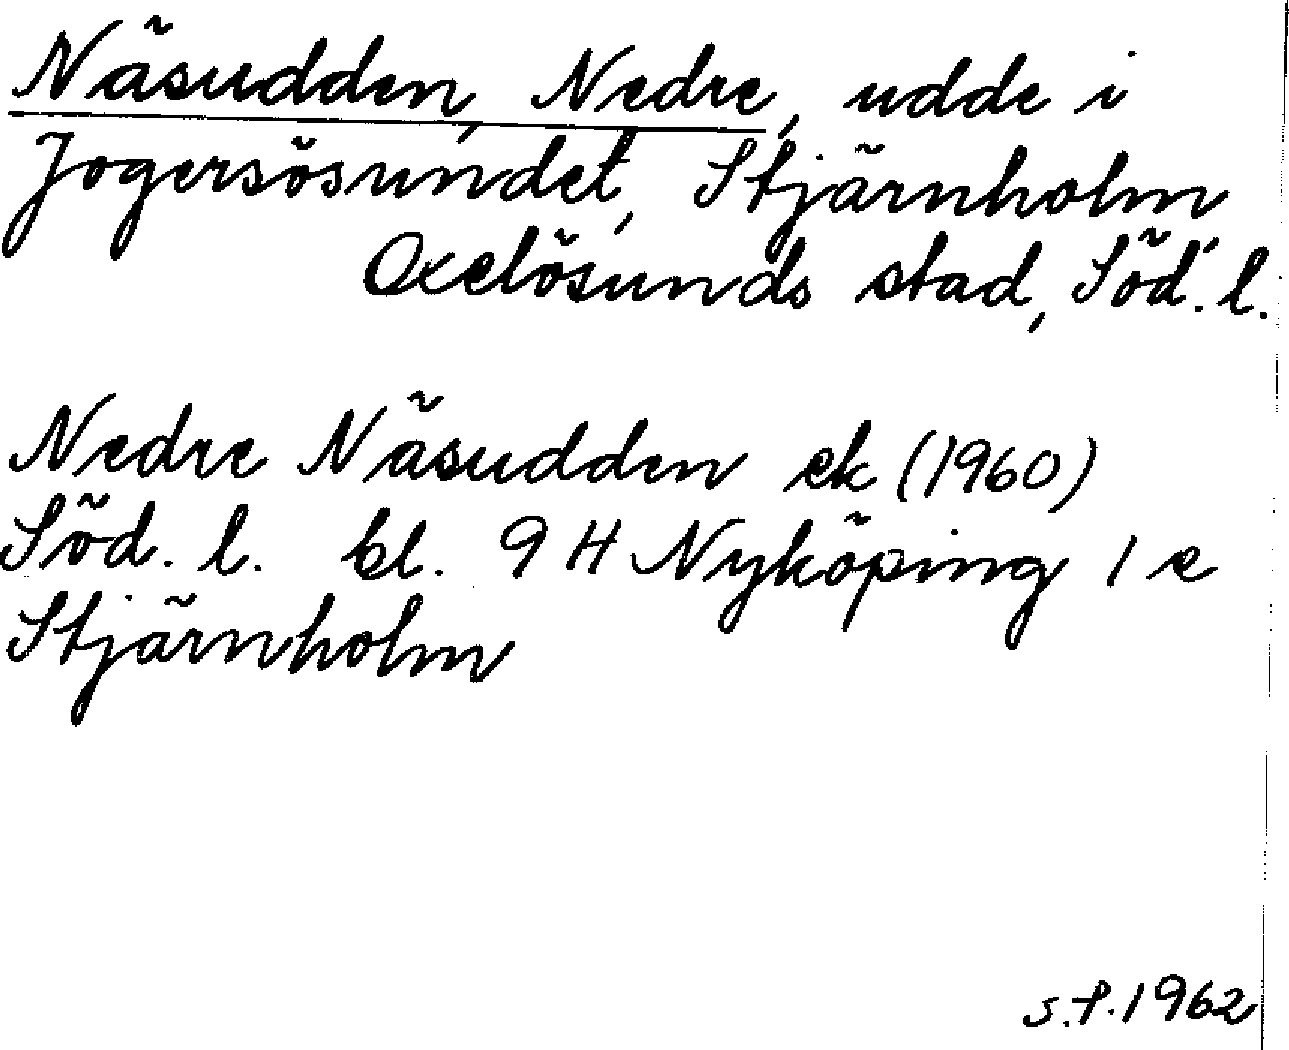 Näsudden, Nedre, udde i
Jogersösundet, Stjärnholm,
Oxelösunds stad, Söd. l.
Nedre Näsudden ek (1960)
Söd. l. bl. 9 H Nyköping 1 e
Stjärnholm
S.P. 1962